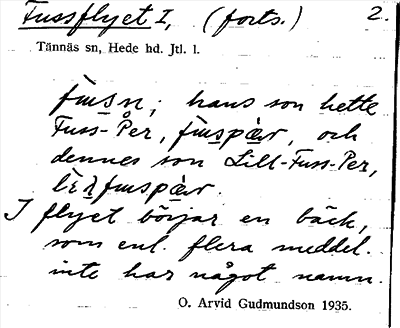 Fussflyet I, (forts.) 2.
Tännäs sn, Hede hd. Jtl. l.
hans son hette
Fuss-Per, och
dennes son Lill-Fuss-Per,
I flyet börjar en bäck,
som enl. flera meddel.
inte har något namn.
O. Arvid Gudmundson 1935.